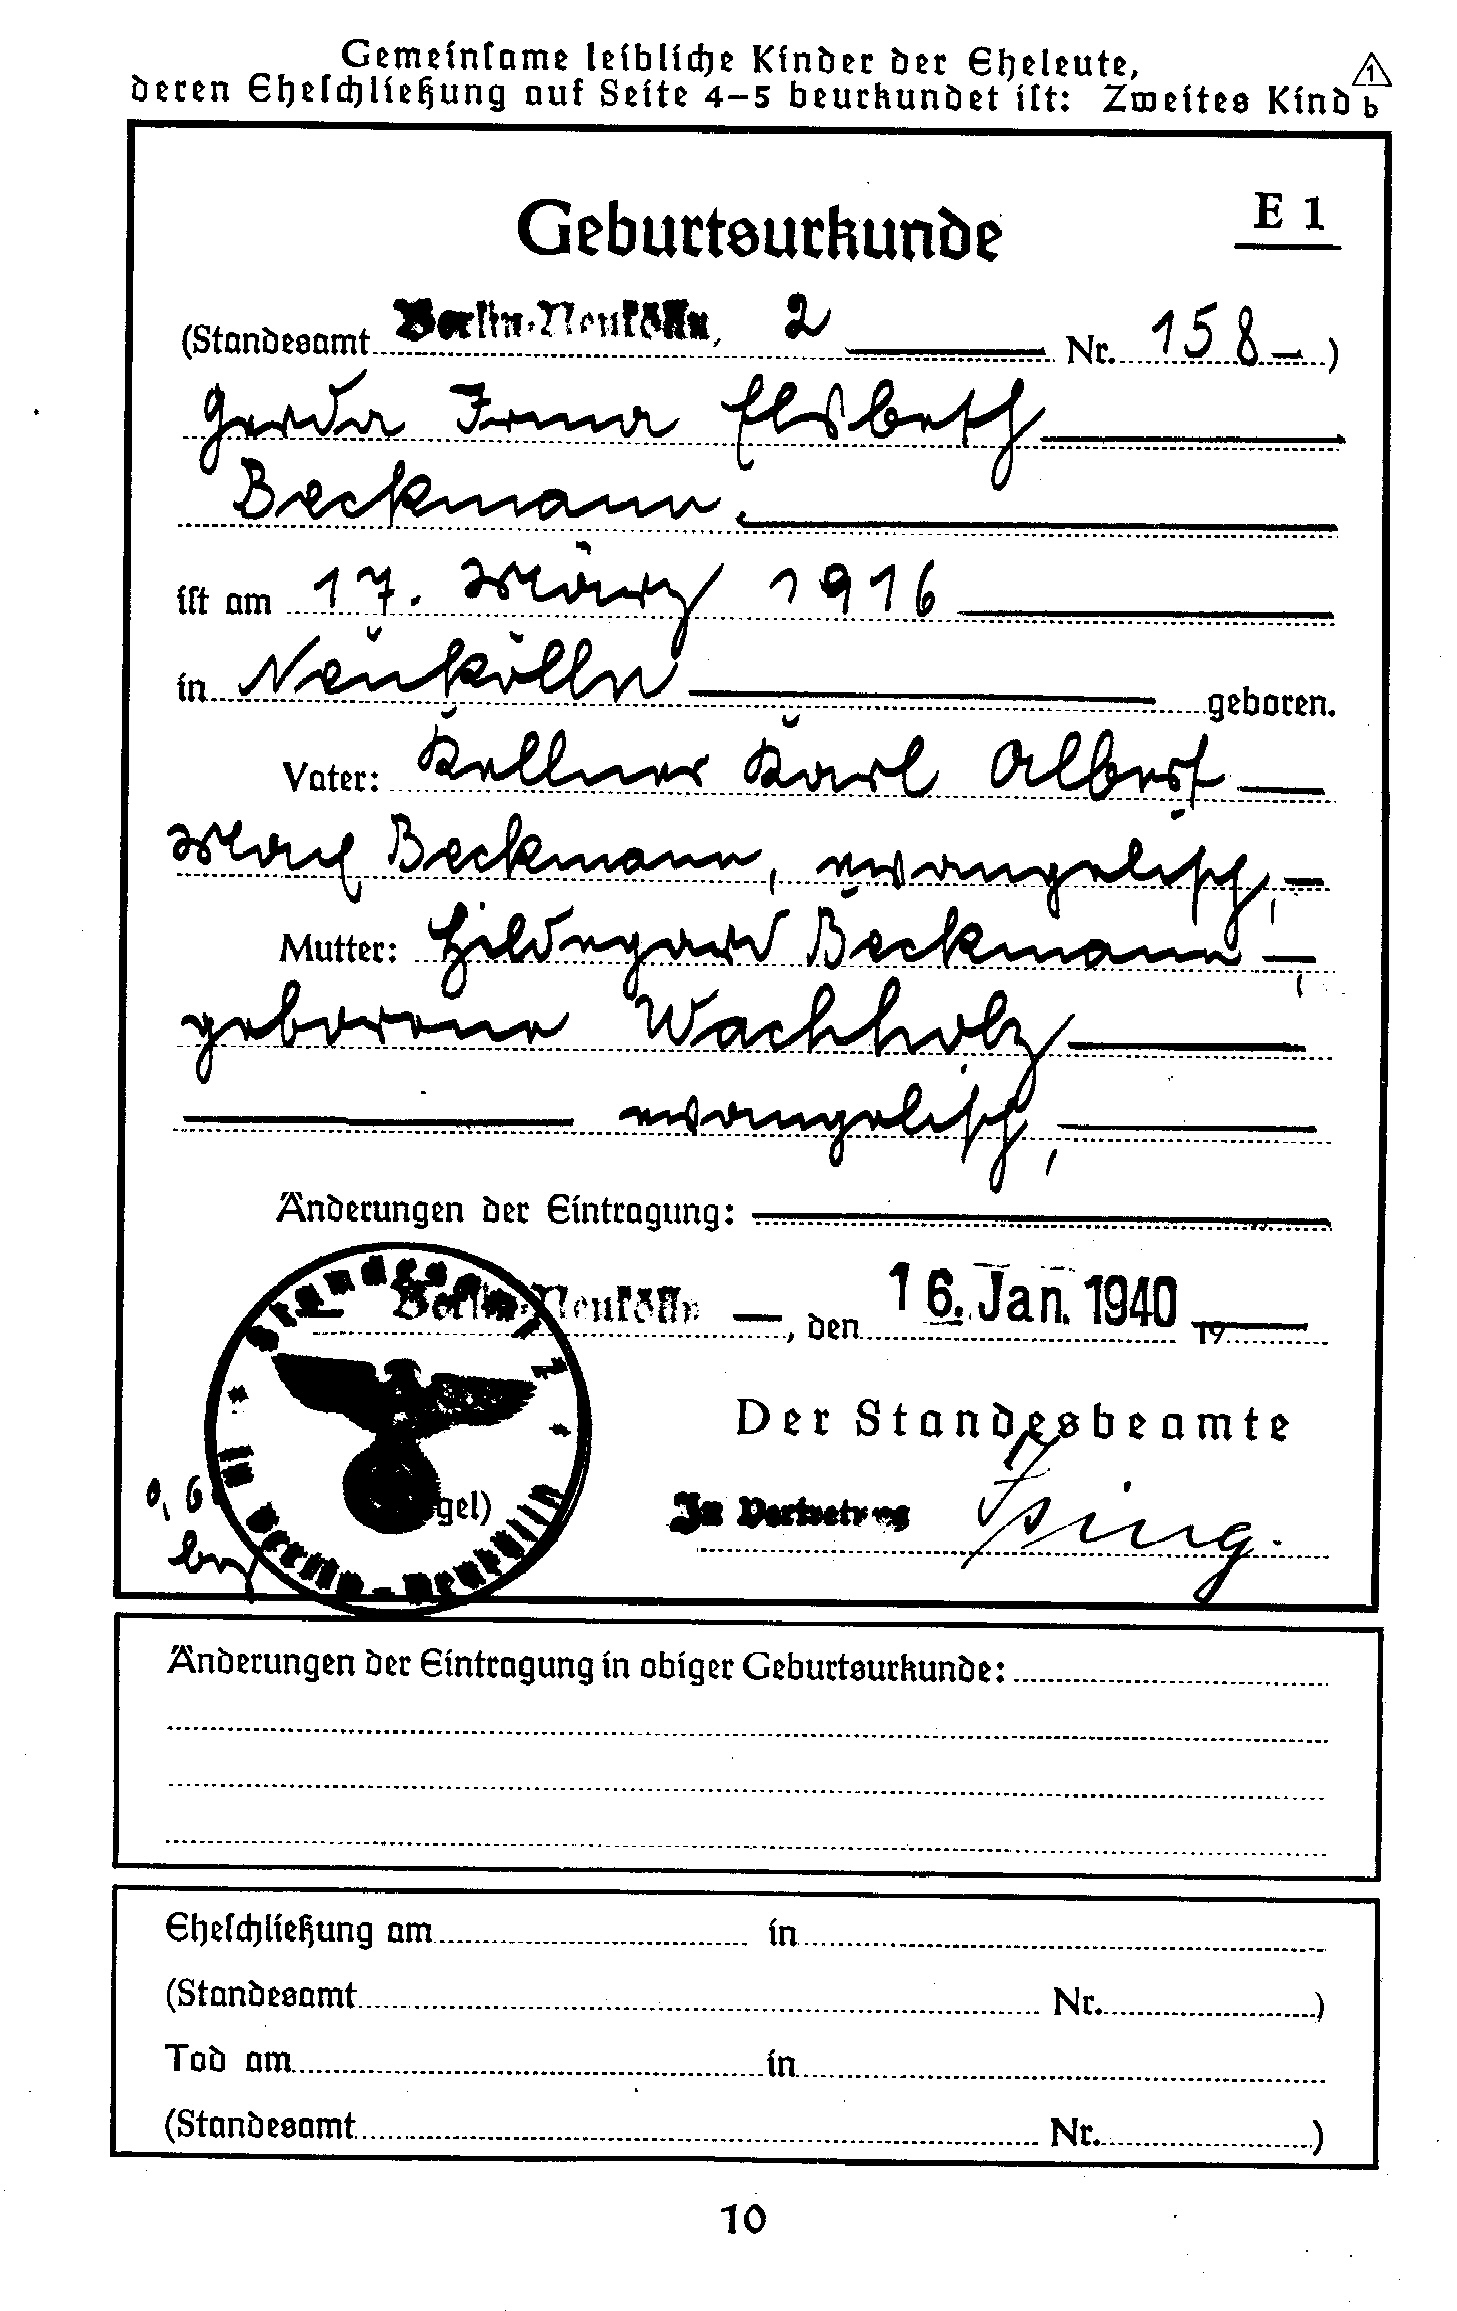 Gemeinsame leibliche Kinder der Eheleute,
deren Eheschließung auf Seite 4–5 beurkundet ist: Zweites Kind b
1
E 1
Geburtsurkunde
(Standesamt Berlin-Neukölln, 2 Nr. 158 –)
Gerda Irma Elsbeth
Beckmann.
ist am 17. März 1916
in Neukölln geboren.
Vater: Kellner Karl Albert
Max Beckmann, evangelisch,
Mutter: Hildegard Beckmann,
geborene Wachholz
evangelisch,
Änderungen der Eintragung:
Berlin-Neukölln, den 16. Jan. 1940 19
Standesamt
Der Standesbeamte
gel)
0,6
In Vertretung
Berlin-Neukölln
Änderungen der Eintragung in obiger Geburtsurkunde:
Eheschließung am in
(Standesamt Nr. )
Tod am in
(Standesamt Nr. )
10